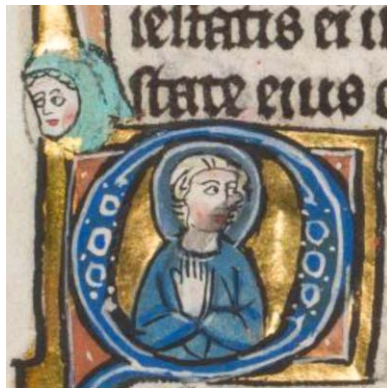 ieſtatis ei
ſtate eius
Q